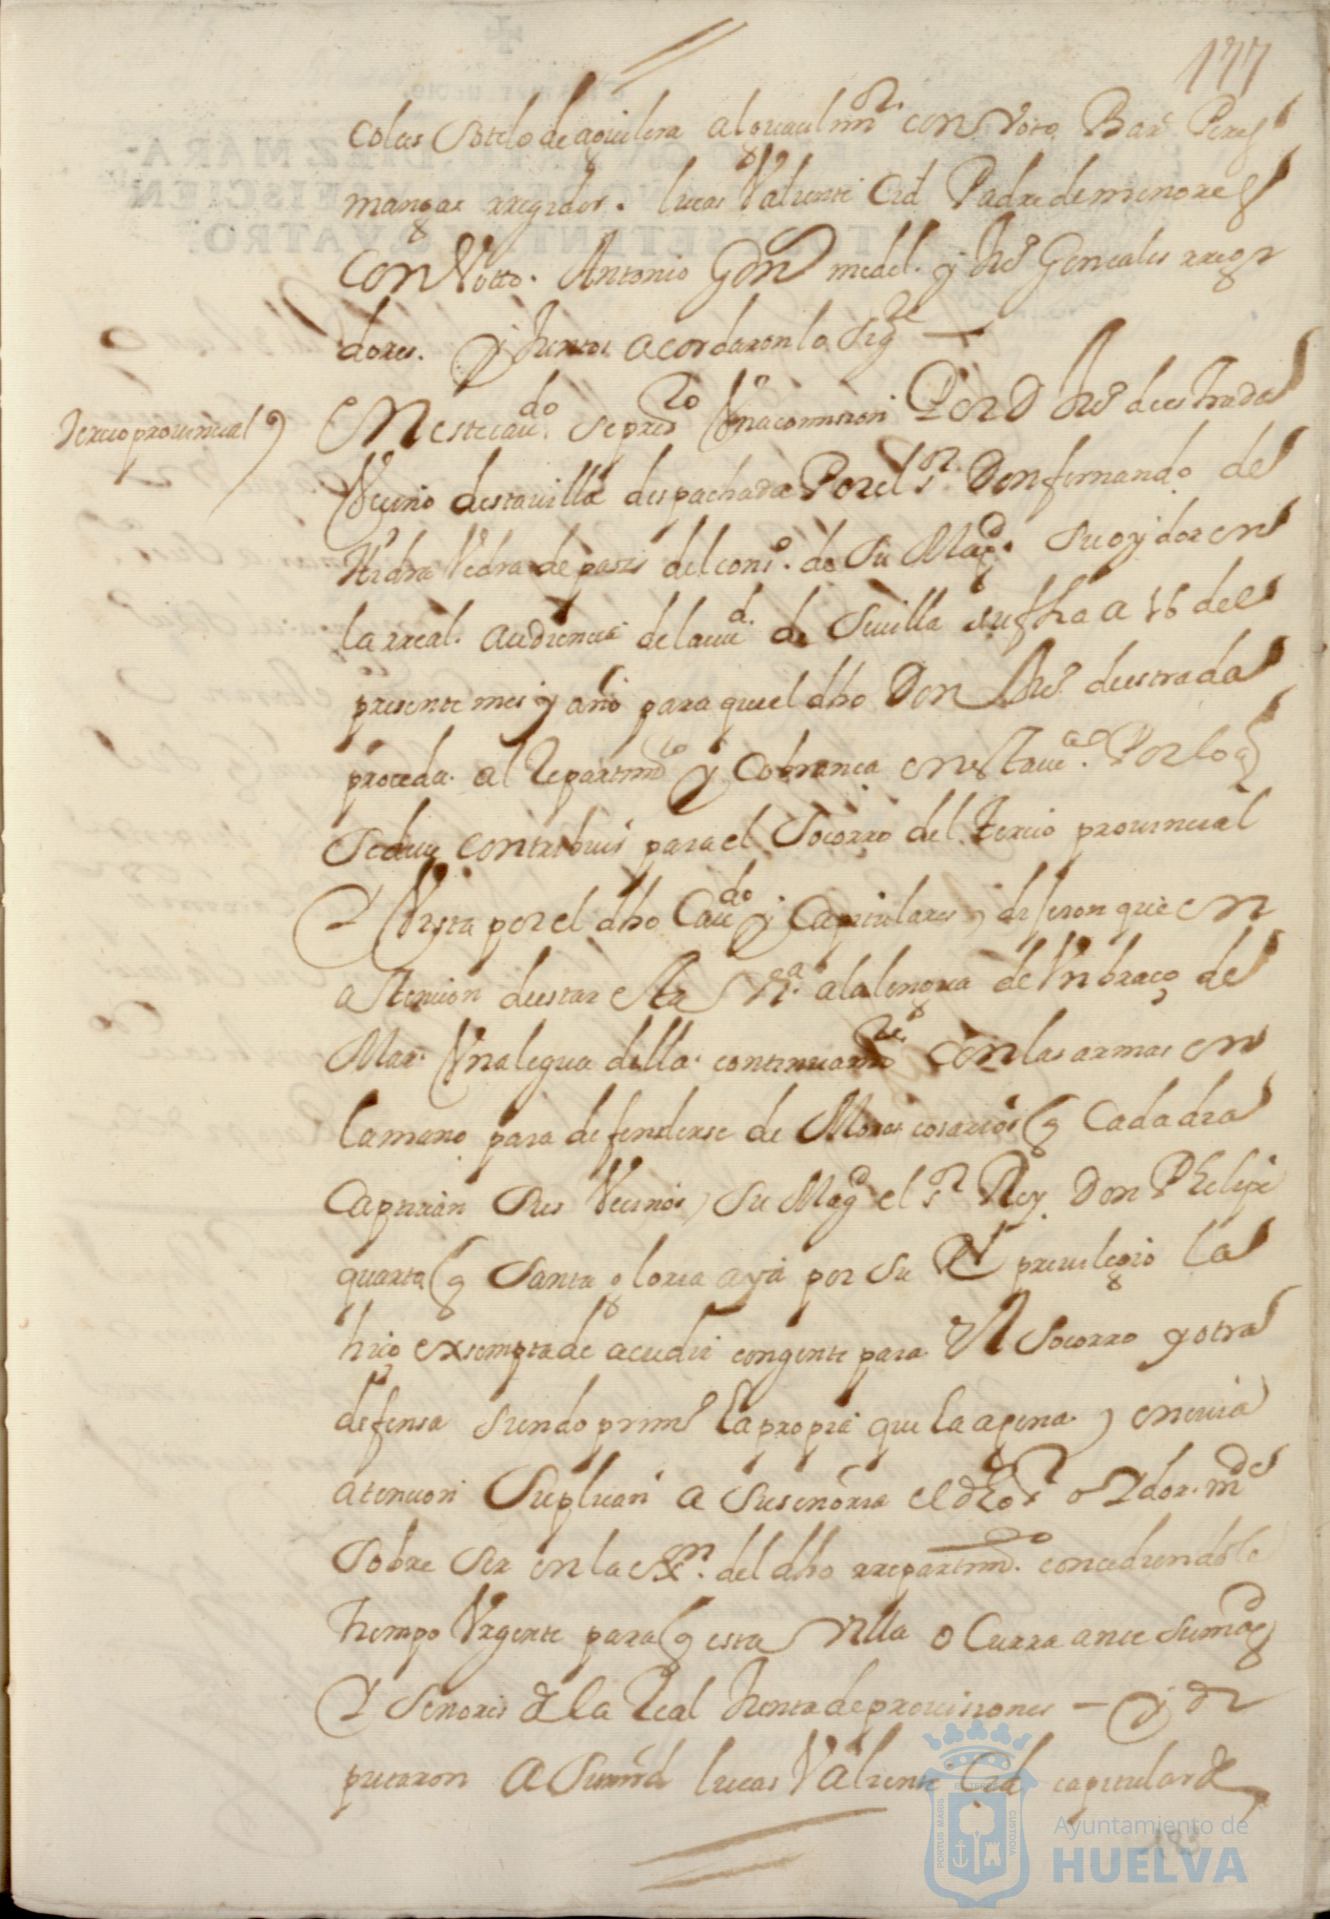 177
colas Sotelo de aguilera alguacil mr. con Voto Bar. Peres
mangas rregidor. lucas Valiente Cid Padre de menores
con Votto. Antonio Gonz medel. y Juo Goncales rregi
dores. y Juntos acordaron lo sige —
tercio provincial
En este cavdo. se presto Una comision Por D Juo de estrada
Vecino desta villa despachada Por el sr. Don fernando de
del cons. de Su Magd. Su oydor en
la rreal. audiencia de la ciud. de Sevilla su fha a 16 del
presente mes y año para que el dho Don Juo. de estrada
proceda. al Repartimto y Cobranca en esta va. Por lo q
se deve contribuir para el Socorro del tercio provincial
Y Vista por el dho Cavdo y Capitulares, dijeron que en
atencion de estar esta Va. a la lengua de Un braço de
Mar. Una legua della. continuamte. con las armas en
la mano para defenderse de Moros cosarios q Cada dia
Captivan Sus Vecinos, Su Magd el sr. Rey Don Phelipe
quarto q Santa gloria aya por Su Rl previlegio la
hiço exsempta de acudir con gente para el Socorro y otra
defensa siendo primo la propia que la agena. y en cuia
atencion Suplican a Su señoria el dho sr oydor. mde
Sobre Ser en la exon. del dho rrepartimto. concediendole
tiempo Urgente para q esta Villa o Curra ante Su magd
Y Senores de la Real Junta de provisiones — y di
putaron a Su md lucas Valiente Cid capitular de
183
PORTUS MARIS
CUSTODIA
Ayuntamiento de
HUELVA